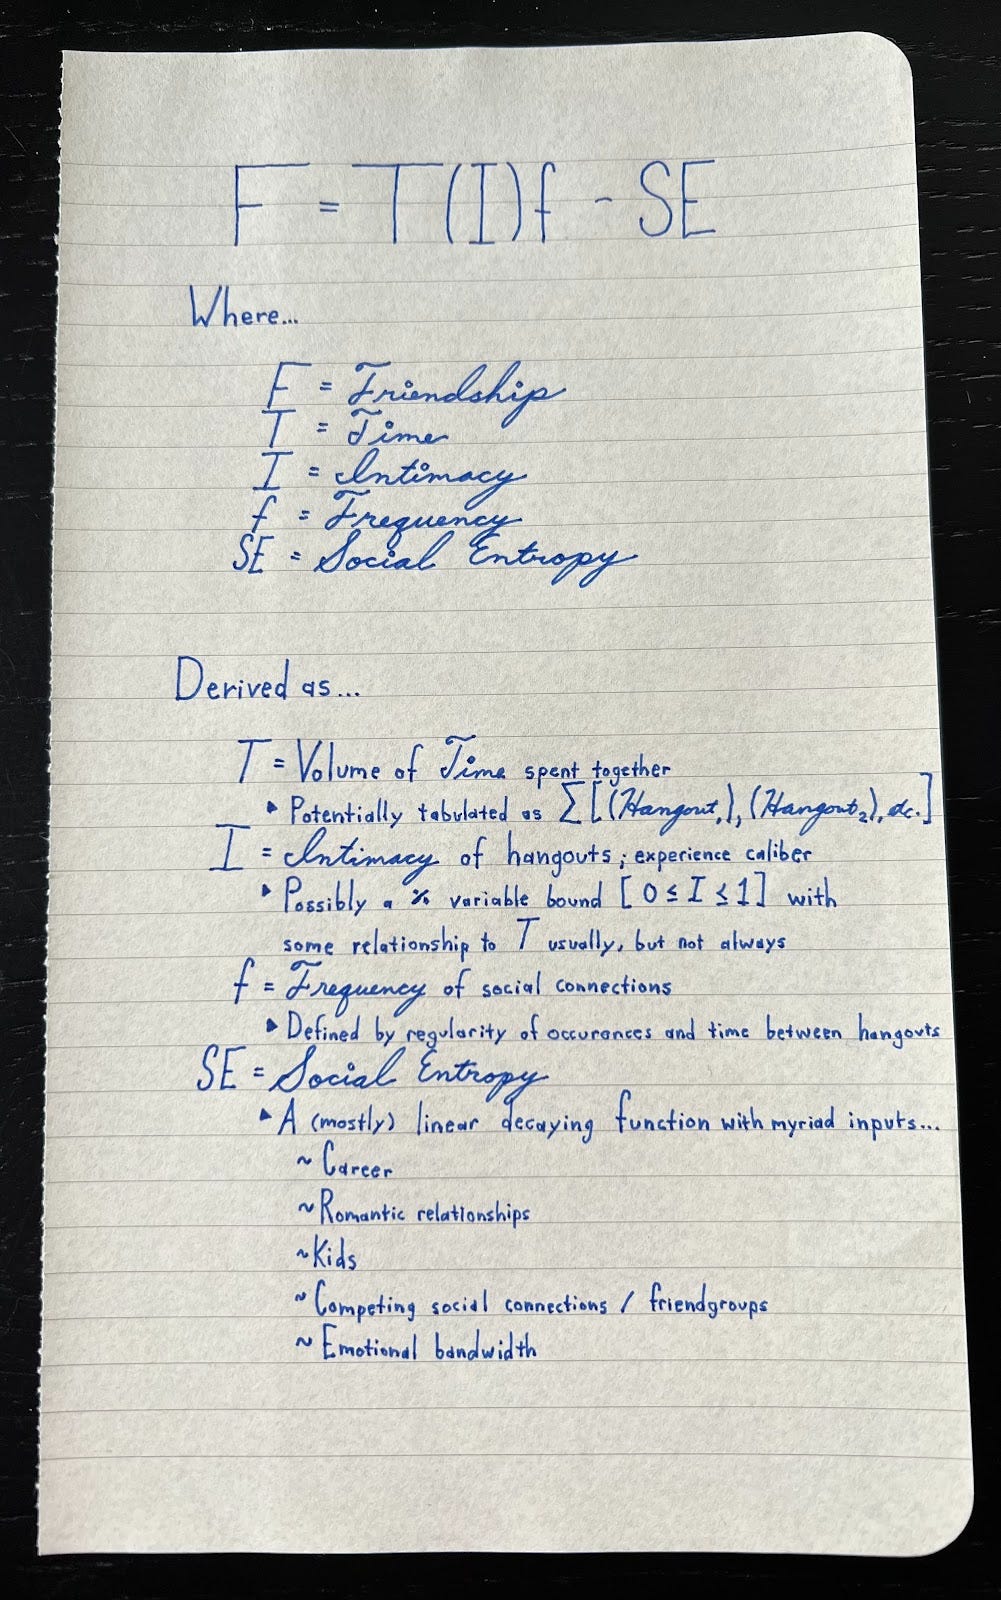 F = T(I)f - SE
Where...
F = Friendship
T = Time
I = Intimacy
f = Frequency
SE = Social Entropy
Derived as...
T = Volume of Time spent together
‣ Potentially tabulated as ∑[(Hangout₁), (Hangout₂), etc.]
I = Intimacy of hangouts; experience caliber
‣ Possibly a % variable bound [0 ≤ I ≤ 1] with
some relationship to T usually, but not always
f = Frequency of social connections
‣ Defined by regularity of occurances and time between hangouts
SE = Social Entropy
‣ A (mostly) linear decaying function with myriad inputs...
~ Career
~ Romantic relationships
~ Kids
~ Competing social connections / friendgroups
~ Emotional bandwidth